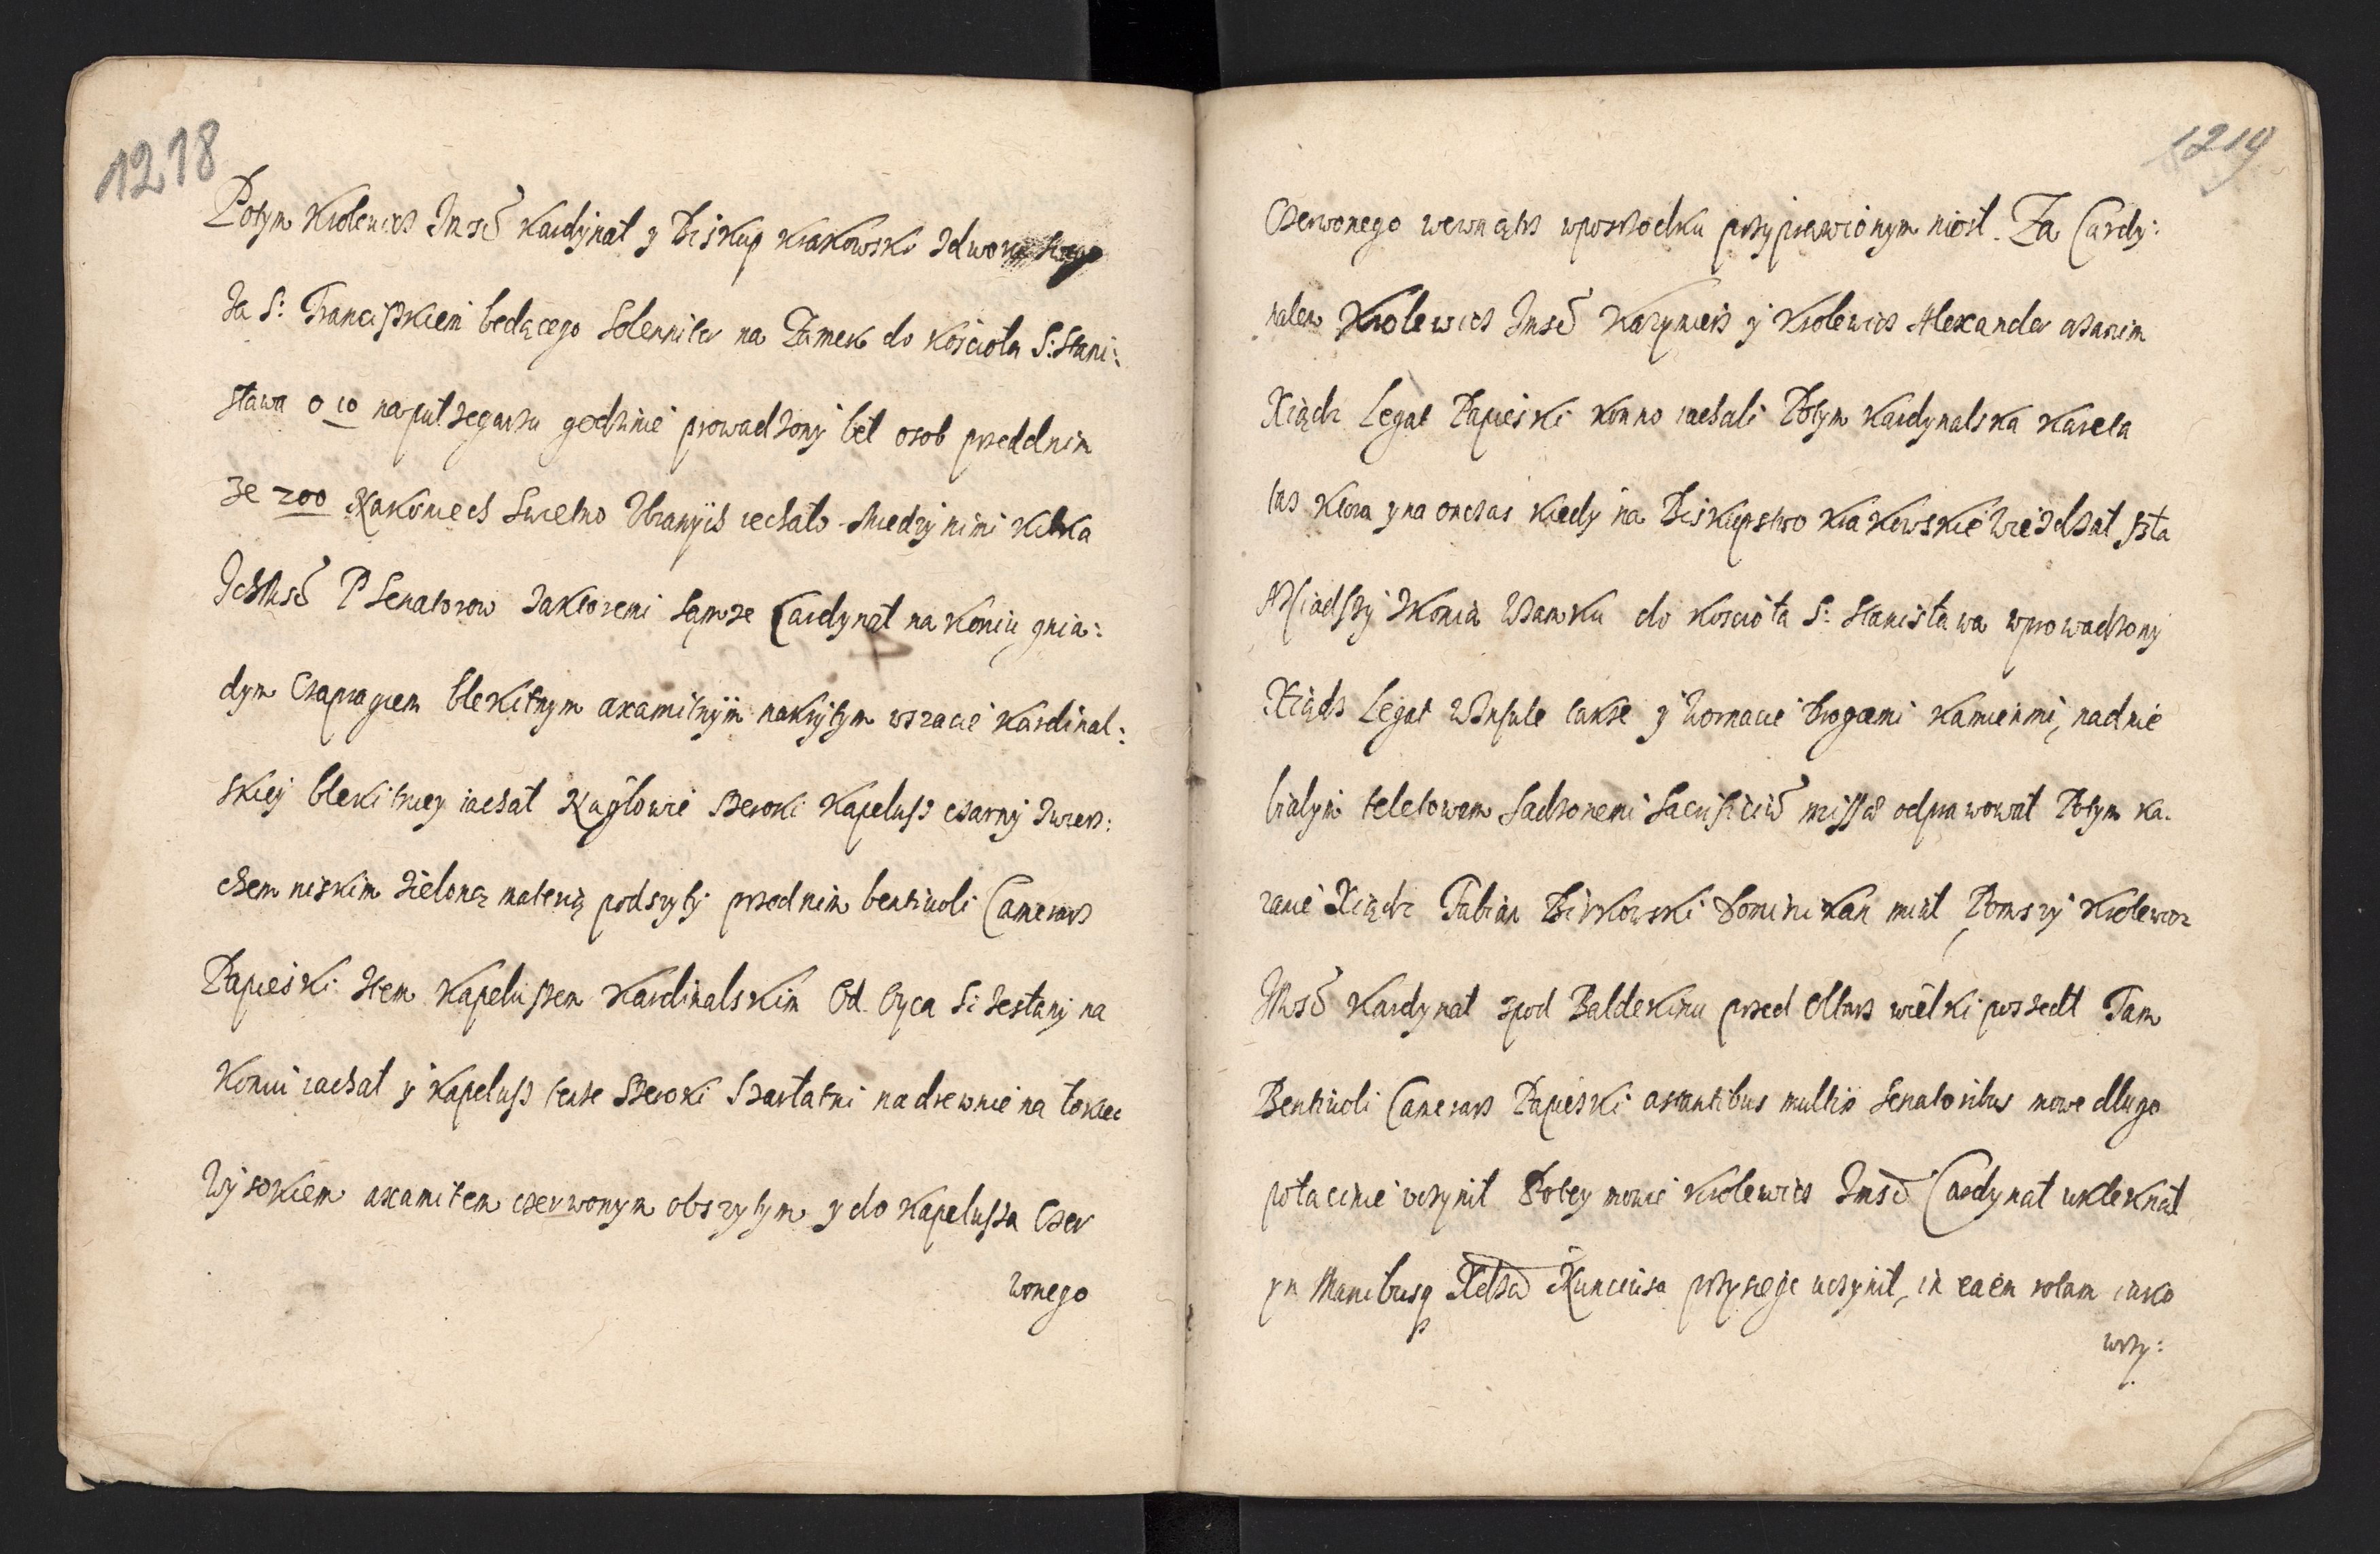 1218
Potym Krolewicz Jmsć Kardynał y Biskup Krakowski zdworu
Za S: Franciszkiem będącego Solenniter na Zamek do Kościoła S: Stani:
sława o 10 napułzegarzu godzinie prowadzony był osob przednim
Ze 200 Nakoniech Swietno Ubranyich iechało Miedzy nimi kilka
Ichmsć P Senatorow zaktoremi Samze Cardynał na koniu gnia:
dym Czapragiem blekitnym axamitnyim nakrytym wszacie kardinal:
skiey blekitney iachał Nagłowie szeroki Kapelusz czarny zwierz:
chem niskim zieloną materią podszyty przednim bentiuoli Camerarz
Papieski ztem kapeluszem Kardinalskim Od Oyca S: zesłany na
koniu iachał y kapelusz tenze szeroki szarłatni nadrewnie na łokiec
Wysokiem axamitem czerwonym obszytym y do kapelusza Czer
wonego
1219
Czerwonego wewnątrz wposrzodku przyprawionym niosł. Za Cardy:
nałem Krolewicz Jmsć Kazymierz y Krolewicz Alexander azanim
Xiądz Legat Papieski konno iachali Potym Kardynalska Kareta
taz ktora y na onczas kiedy na Biskupstwo Krakowskie wieżdzał szła
A zsiadszy zkonia WZamku do Koscioła S: Stanisława wprowadzony
Xiądz Legat WInfule także y Wornacie Drogiemi kamieńmi, nadnie
białym teletowem Sadzonemi Sacrificiū missæ odprawował Potym ka.
zanie Xiądz Fabian Birkowski Dominikan miał, Pomszy Krolewicz
Jmsć Kardynał zpod Baldekinu przed Ołtarz wielki poszedł Tam
Bentiuoli Camerarz Papieski astantibus multis Senatoribus mowe długo
połacinie uczynił Potey mowie Krolewicz Jmsć Cardynał uklęknął
yn Manibusq Xdza Nunciusa przysięge uczynił, in eaem rotam iako
wszy: